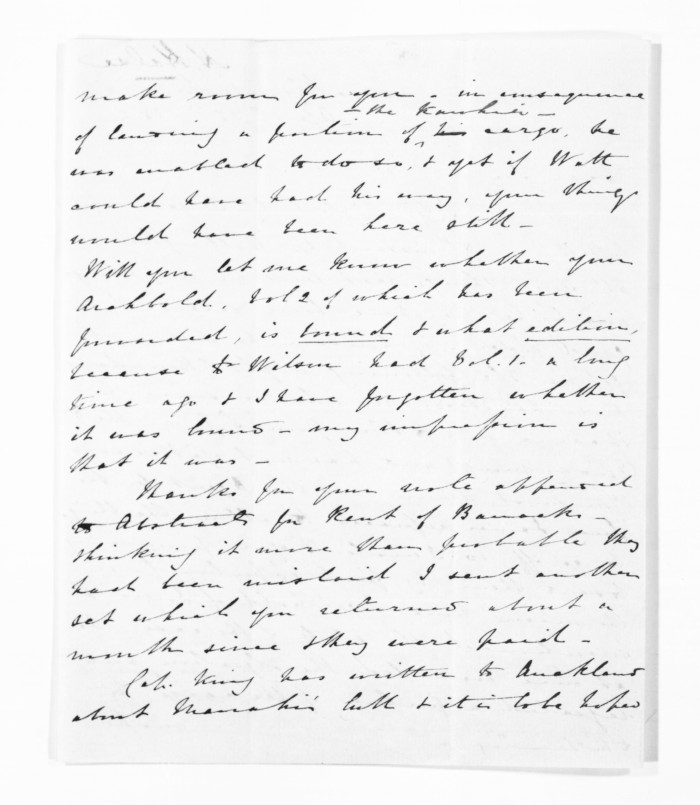 make room for you & in consequence
of landing a portion of his cargo, he
— the Kaiuhia —
was enabled to do so, & yet if Watt
could have had his way, your things
would have been here still –
Will you let me know whether your
Archbold, Vol 2 of which has been
forwarded, is bound & what edition,
because Dr Wilson had Vol. 1. a long
time ago & I have forgotten whether
it was bound – my impression is
that it was –
Thanks for your note appended
to Abstracts for Rent of Barracks –
thinking it more than probable they
had been mislaid I sent another
set which you returned about a
month since & they were paid –
Cap. King has written to Auckland
about Manahi's bull & it is to be hoped